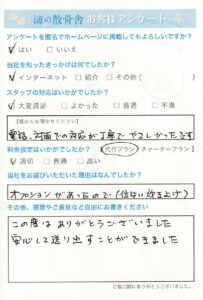 海の散骨舎 お客様アンケート
アンケートを匿名でホームページに掲載してもよろしいですか?
はい □いいえ
当社を知ったきっかけは何でしたか?
インターネット □紹介 □その他( )
スタッフの対応はいかがでしたか?
大変満足 □よかった □普通 □不満
【理由もお聞かせください】
電話、対面での対応が丁寧でやさしかったです
料金設定はいかがでしたか? 代行プラン チャータープラン
適切 □普通 □高い
当社をお選びいただいた理由はなんでしたか?
オプションがあったので(位はい焚き上げ)
その他、感想やご意見など自由にお書きください
この度はありがとうございました
安心して送り出すことができました
ご協力誠にありがとうございました。